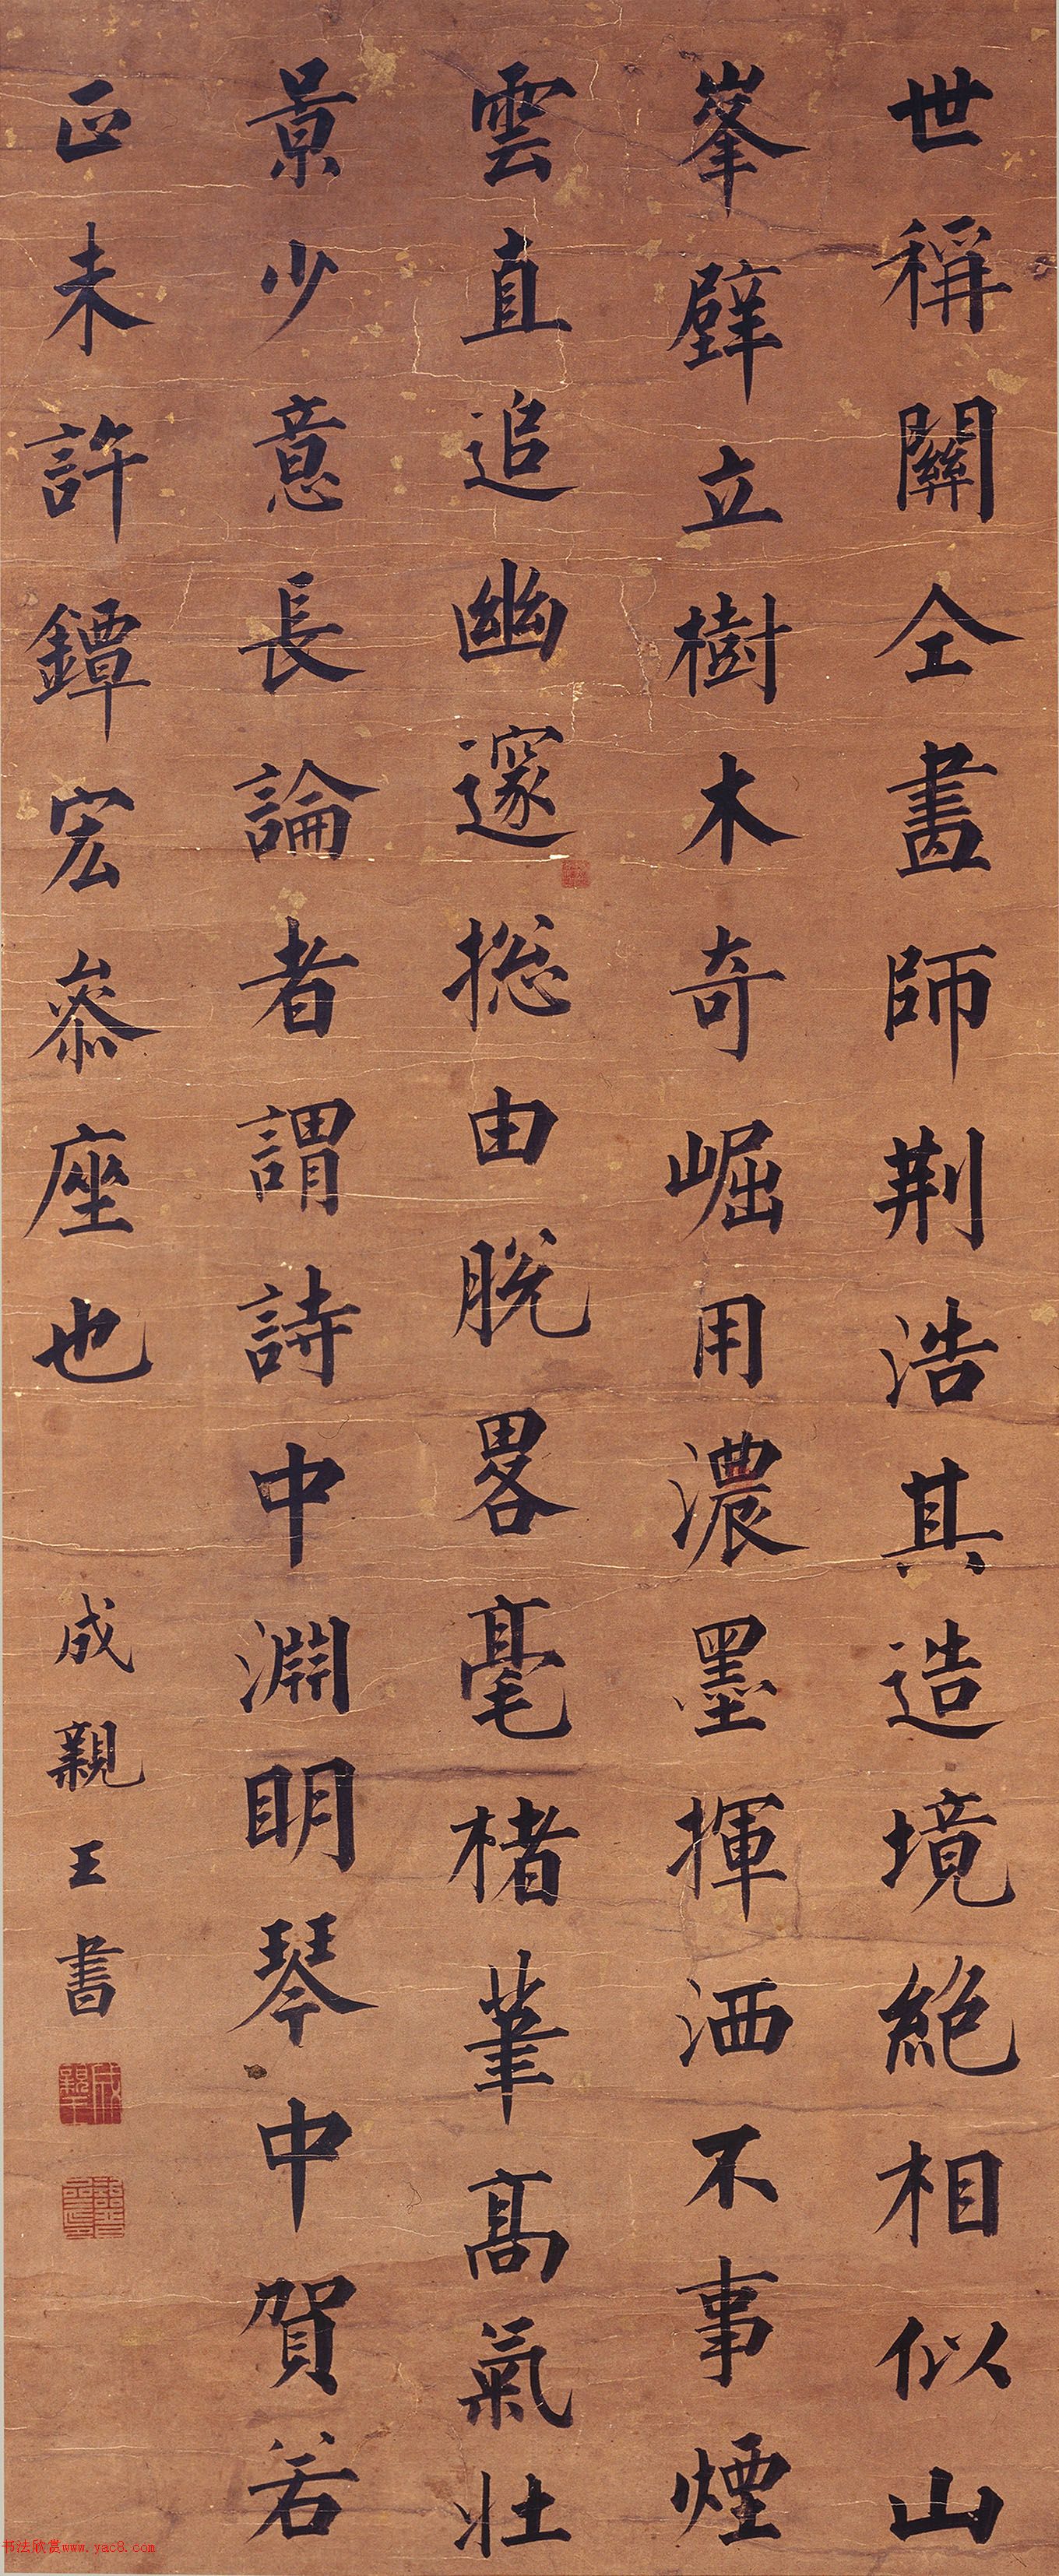 世稱關仝畫師荆浩其造境絶相似山
峯壁立樹木奇崛用濃墨揮洒不事煙
雲直追幽邃揔由脫畧毫楮筆髙氣壯
景少意長論者謂詩中淵明琴中賀若
正未許鐔宏叅座也
成親王書
成親王
书法欣赏www.yac8.com